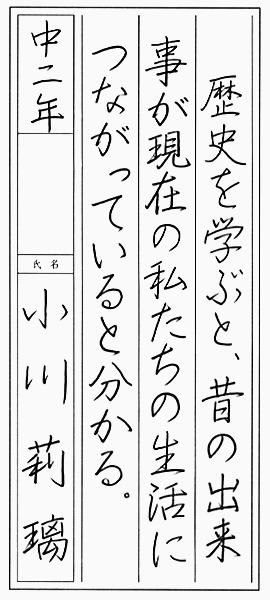 歴史を学ぶと、昔の出来
事が現在の私たちの生活に
つながっていると分かる。
中二年
氏名
小川莉璃